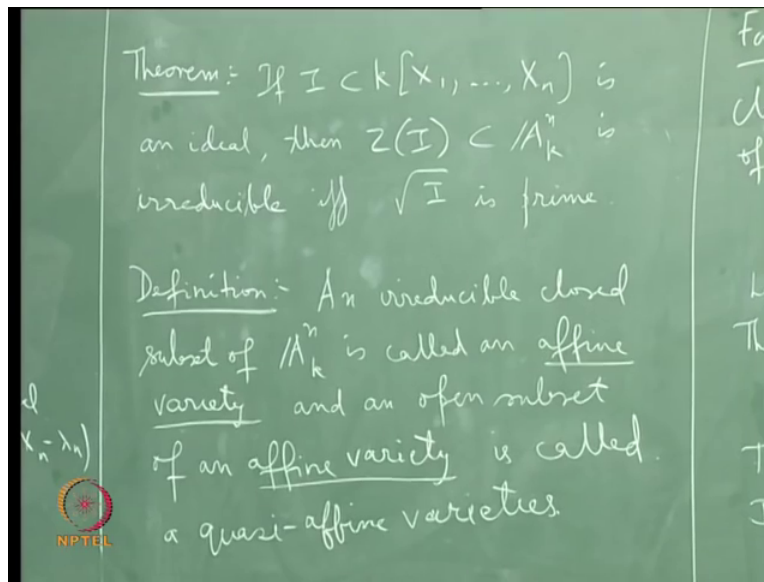 Theorem:- If I ⊂ k[X₁, ..., Xₙ] is
an ideal, then Z(I) ⊂ 𝔸ⁿₖ is
irreducible iff √I is prime.
Definition:- An irreducible closed
subset of 𝔸ⁿₖ is called an affine
variety and an open subset
of an affine variety is called
a quasi-affine varieties.
Xₙ - λₙ)
NPTEL
of
Th